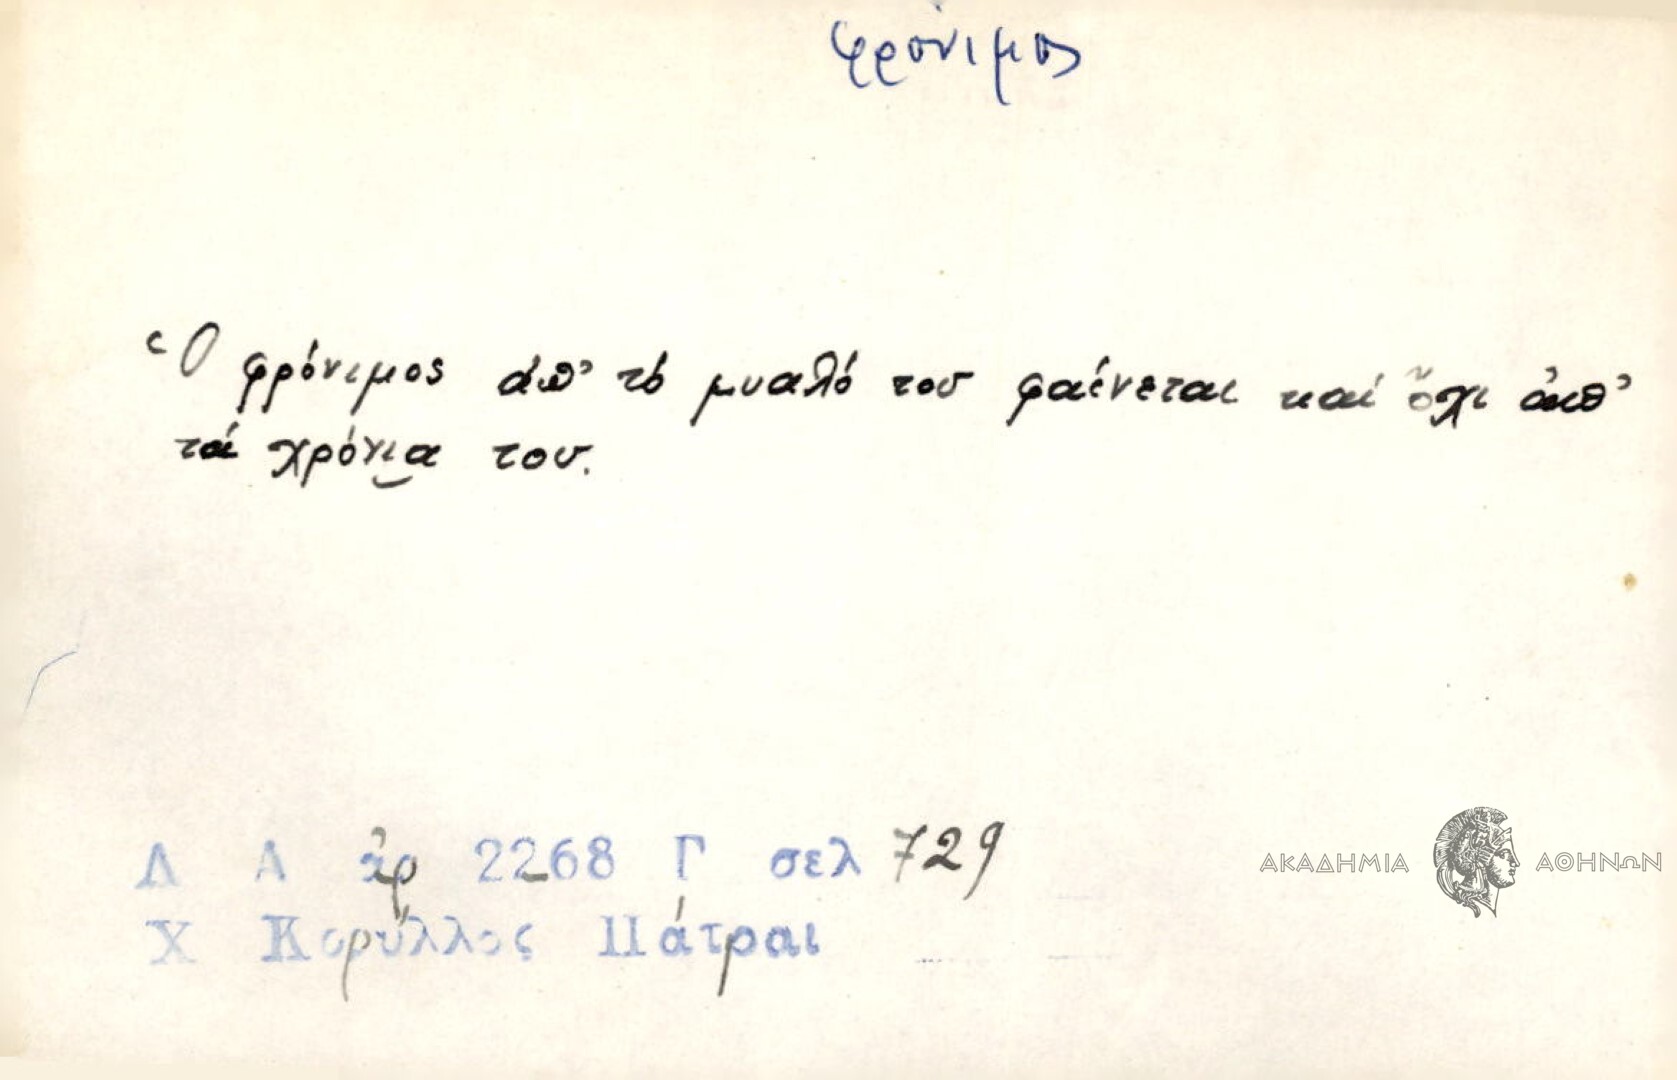 φρόνιμος
Ὁ φρόνιμος ἀπ' τό μυαλό του φαίνεται καί ὄχι ἀπ'
τά χρόνια του.
Λ Α ἀρ 2268 Γ σελ 729
Χ Κορύλλος Πάτραι
ΑΚΑΔΗΜΙΑ ΑΘΗΝΩΝ